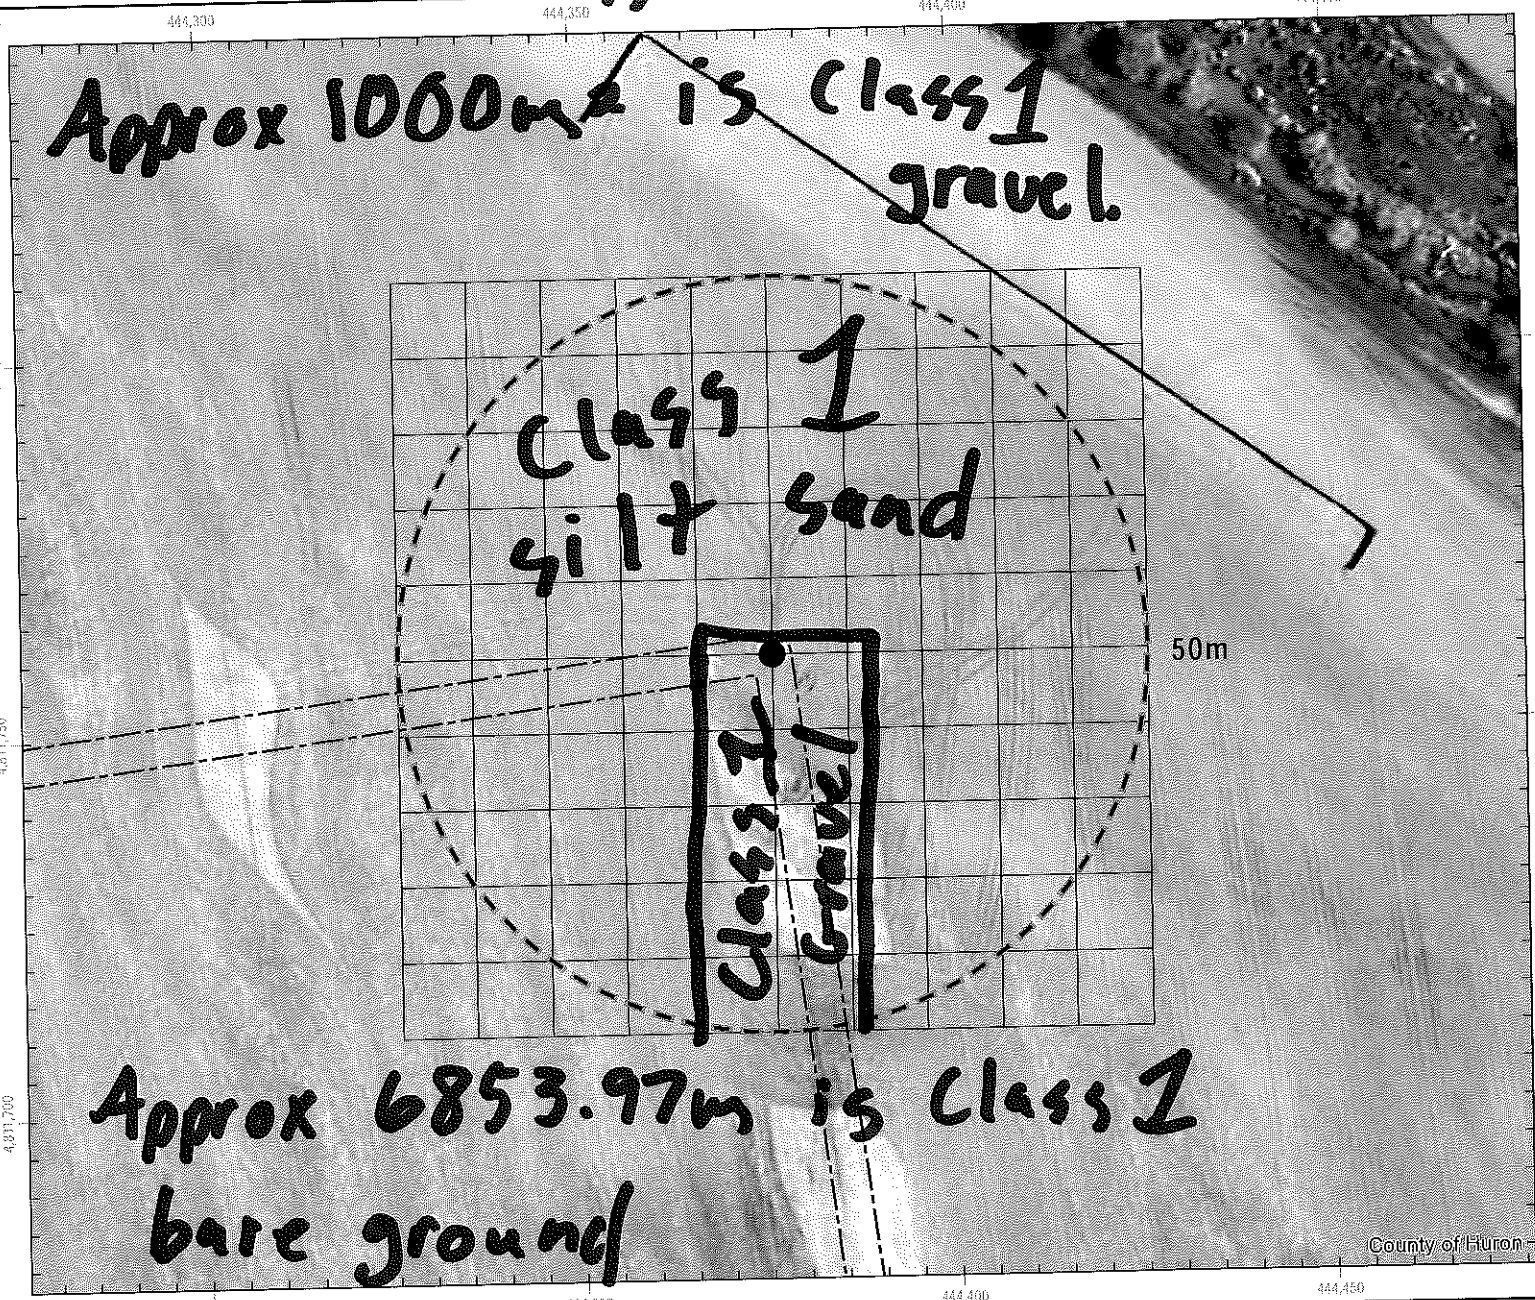 444,300 444,350 444,400
Approx 1000m² is Class 1
gravel.
Class 1
silt sand
50m
Class 1
Gravel
4,811,750
4,811,700
Approx 6853.97m is Class 1
bare ground
County of Huron
444,400 444,450